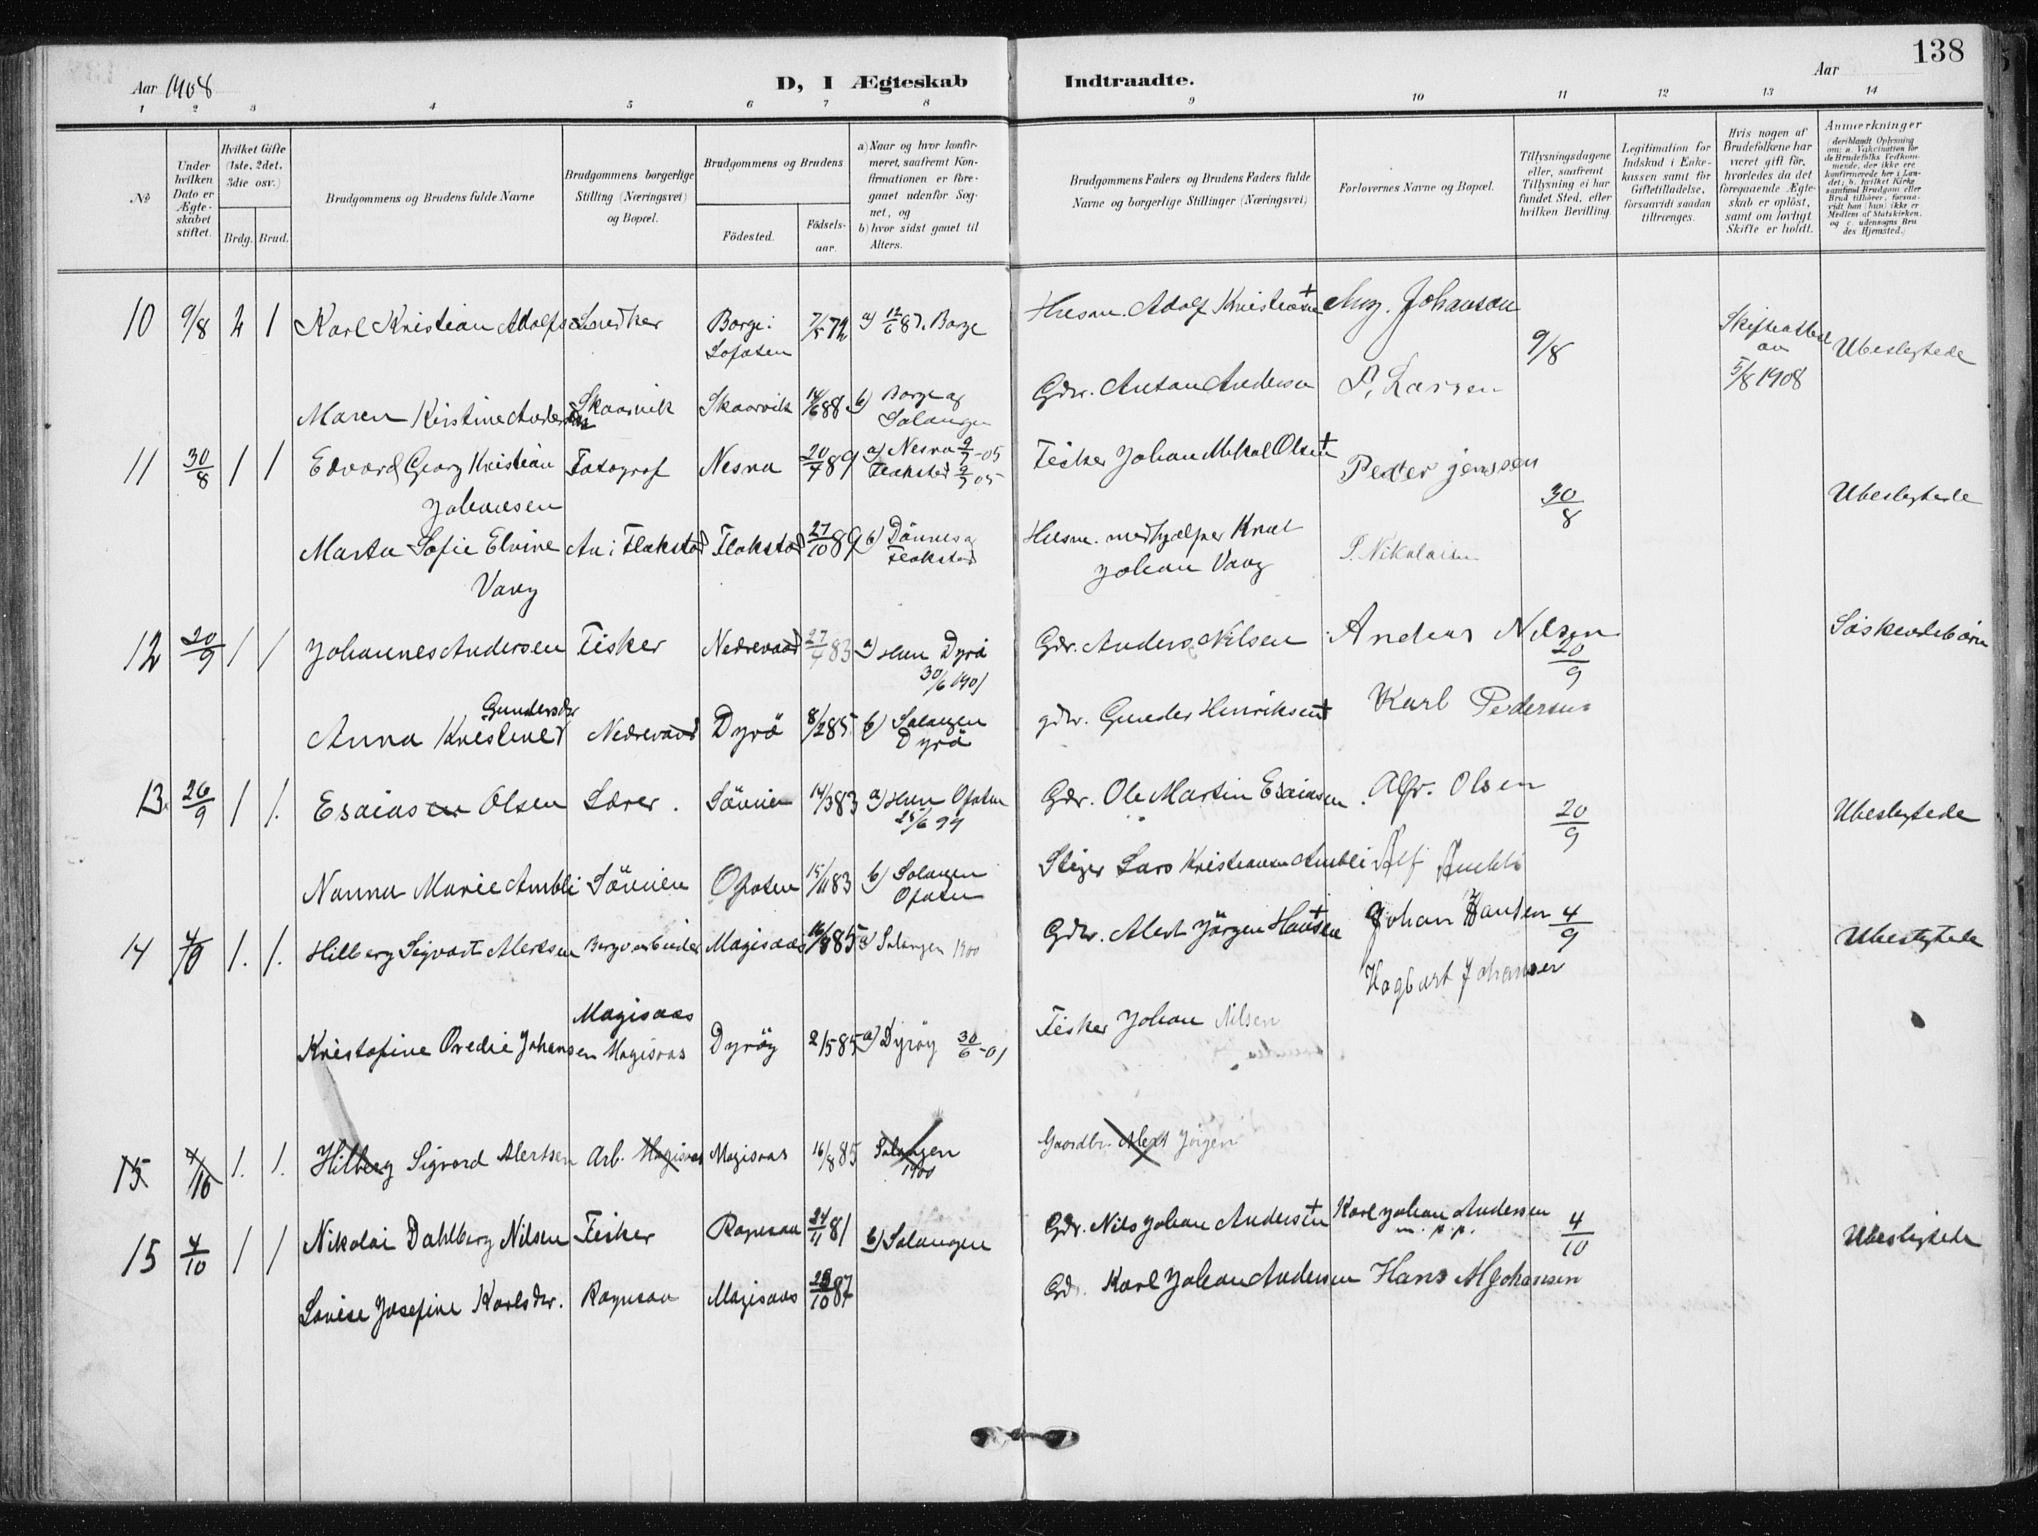 138
Aar 1908
D, I Ægteskab Indtraadte.
Aar
1 2 3 4 5 6 7 8 9 10 11 12 13 14
No
Under hvilken Dato er Ægteskabet stiftet.
Hvilket Gifte (1ste, 2det, 3die osv.)
Brdg. Brud.
Brudgommens og Brudens fulde Navne
Brudgommens borgerlige Stilling (Næringsvei) og Bopæl.
Brudgommens og Brudens
Födested.
Födselsaar.
a) Naar og hvor konfirmeret, saafremt Konfirmationen er foregaaet udenfor Sognet, og
b) hvor sidst gaaet til Alters.
Brudgommens Faders og Brudens Faders fulde Navne og borgerlige Stillinger (Næringsvei)
Forlovernes Navne og Bopæl.
Tillysningsdagene eller, saafremt Tillysning ei har fundet Sted, efter hvilken Bevilling.
Legitimation for Indskud i Enkekassen samt for Giftetilladelse, forsaavidt saadan tiltrænges.
Hvis nogen af Brudefolkene har været gift för, hvorledes da det foregaaende Ægteskab er oplöst, samt om lovligt Skifte er holdt.
Anmærkninger
(deriblandt Oplysning om: a. Vakcination for de Brudefolks Vedkommende, der ikke ere konfirmerede her i Landet; b. hvilket Kirke samfund Brudgom eller Brud tilhörer, forsaavidt han (hun) ikke er Medlem af Statskirken, og c. udensogns Brudes Hjemsted.)
10 9/8 2 1 Karl Kristian Adolfs Snedker Borge i Lofoten 7/5 72 a) 12/6 87. Borge Husm. Adolf Kristiansen + Aug. Johanson 9/8 Skifteattest av 5/8 1908 Ubeslegtede
Maren Kirstine Andersen Skaarvik Skaarvik 14/6 88 b) Borge og Salangen Gdr. Anton Andersen P. Larsen
11 30/8 1 1 Edvard Georg Kristian Johansen Fotograf Nesna 20/7 89 a) Nesna 9/7-05 Flakstad 9/7 05 Fisker Johan Mikal Olsen + Peder Jenssen 30/8 Ubeslegtede
Marta Sofie Elvine Vaag Au i Flakstad Flakstad 27/10 89 b) Dønnes og Flakstad Husm. medhjælper Knut Johan Vaag P. Nikolaisen
12 20/9 1 1 Johannes Andersen Fisker Nedrevand 27/7 83 a) Hun Dyrö 30/6 1901 Gdr. Anders Nilsen Andreas Nilsen 20/9 Söskendebörn
Anna Kristine Gundersdr Nedrevand Dyrö 8/2 85 b) Salangen Dyrö gdr. Gunder Henriksen + Karl Pedersen
13 26/9 1 1. Esaias Olsen Lærer. Lövlien 14/3 83 a) Hun Ofoten 25/6 99 Gdr. Ole Martin Esaiasen. Alfr. Olsen 20/9 Ubeslegtede
Nanna Marie Ambli Lövlien Ofoten 15/11 83 b) Salangen Ofoten Stiger Lars Kristiansen Ambli Alf Ambli
14 1. 1. Hilberg Sigvart Alertsen Bergarbeider Magisaas Magisaas 16/8 85 a) Salangen 1900 Gdr. Alert Jörgen Hansen + Johan Hansen 4/9 Ubeslegtede
Kristofine Ovedie Johansen Magisaas Dyröy 2/5 85 a) Dyröy 30/6-01 Fisker Johan Nilsen Hagbart Johansen
15 4/10 1. 1. Hilberg Sigvard Alertsen Arb. Magisaas Magisaas 16/8 85 Salangen 1900 Gaardbr. Alert Jörgen
15 4/10 1 1 Nikolai Dahlberg Nilsen Fisker 24/11 81 b) Salangen Gdr. Nils Johan Andersen + Karl Johan Andersen m. p. p. 4/10 Ubeslegtede
Lovise Josefine Karlsdr. Magisaas 87 Gd. Karl Johan Andersen Hans M Johansen